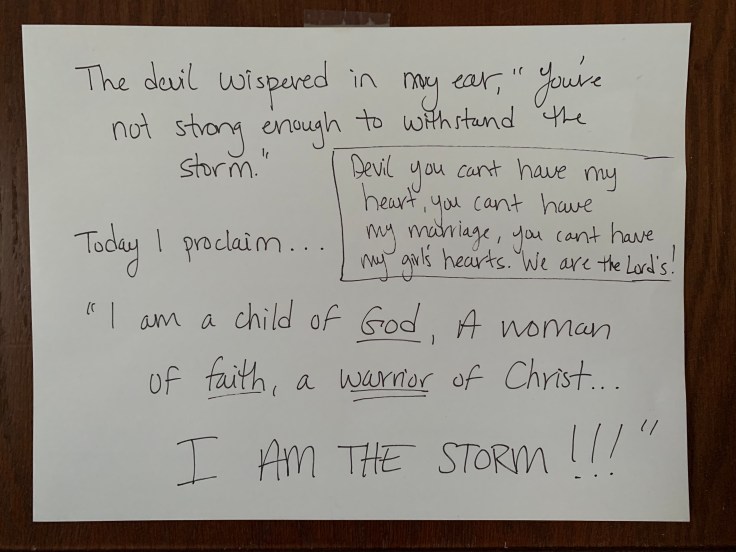 The devil wispered in my ear, "You're
not strong enough to withstand the
storm."
Devil you cant have my
heart, you cant have
my marriage, you cant have
my girl's hearts. We are the Lord's!
Today I proclaim...
"I am a child of God, A woman
of faith, a warrior of Christ...
I AM THE STORM!!!"